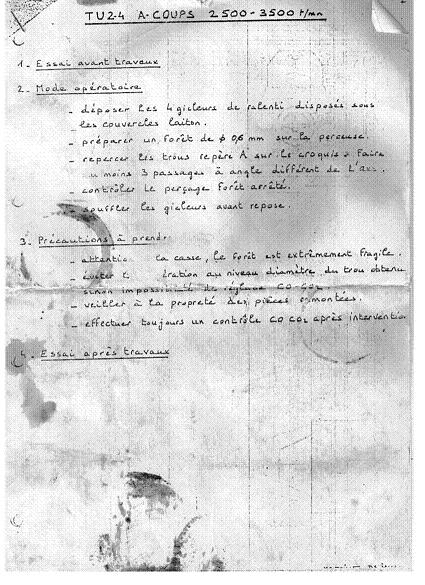 TU2.4 A-COUPS 2500-3500 t/mn
1. Essai avant travaux
2. Mode opératoire
- déposer les 4 gicleurs de ralenti disposés sous
les couvercles laiton.
- préparer un forêt de φ 0,6 mm sur la perceuse.
- repercer les trous repère A sur le croquis. Faire
au moins 3 passages à angle différent de l'axe.
- contrôler le perçage forêt arrêté.
- souffler les gicleurs avant repose.
3. Précautions à prendre
- attention la casse, le forêt est extrêmement fragile.
- au niveau diamètre du trou obtenu
sinon impossibilité de réglage CO-CO2.
- veiller à la propreté des pièces remontées.
- effectuer toujours un contrôle CO CO2 après intervention
4. Essai après travaux